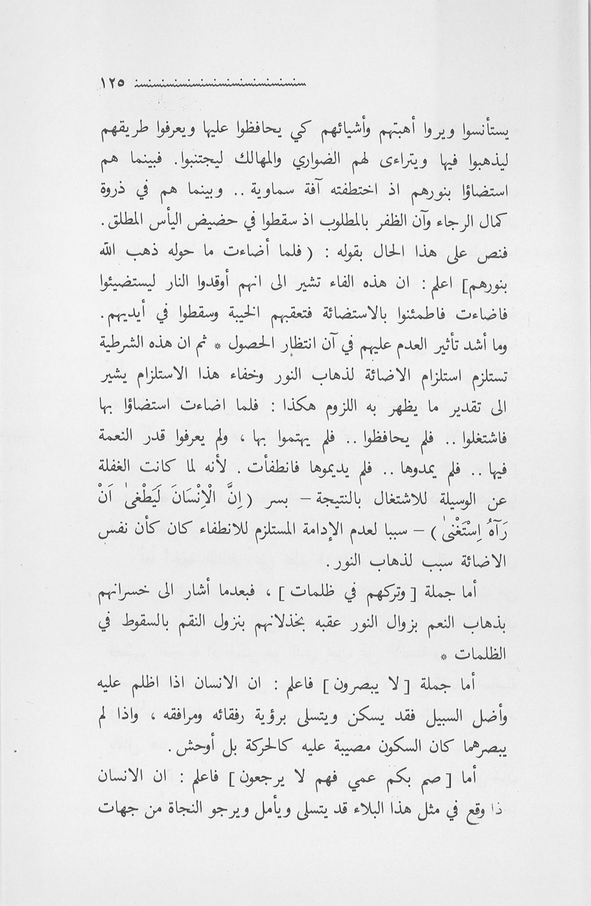 ١٢٥
يستأنسوا ويروا أهبتهم وأشيائهم كي يحافظوا عليها ويعرفوا طريقهم
ليذهبوا فيها ويتراءى لهم الضواري والمهالك ليجتنبوا. فبينما هم
استضاؤا بنورهم اذ اختطفته آفة سماوية .. وبينما هم في ذروة
كمال الرجاء وآن الظفر بالمطلوب اذ سقطوا في حضيض اليأس المطلق.
فنص على هذا الحال بقوله : ( فلما أضاءت ما حوله ذهب الله
بنورهم] اعلم : ان هذه الفاء تشير الى انهم أوقدوا النار ليستضيئوا
فاضاءت فاطمئنوا بالاستضائة فتعقبهم الخيبة وسقطوا في أيديهم.
وما أشد تأثير العدم عليهم في آن انتظار الحصول * ثم ان هذه الشرطية
تستلزم استلزام الاضائة لذهاب النور وخفاء هذا الاستلزام يشير
الى تقدير ما يظهر به اللزوم هكذا : فلما اضاءت استضاؤا بها
فاشتغلوا .. فلم يحافظوا .. فلم يهتموا بها ، ولم يعرفوا قدر النعمة
فيها .. فلم يمدوها .. فلم يديموها فانطفأت . لأنه لما كانت الغفلة
عن الوسيلة للاشتغال بالنتيجة – بسر ( اِنَّ الْاِنْسَانَ لَيَطْغىٰ اَنْ
رَآهُ اِسْتَغْنىٰ ) – سببا لعدم الإدامة المستلزم للانطفاء كان كأن نفس
الاضائة سبب لذهاب النور .
أما جملة [ وتركهم في ظلمات ] ، فبعدما أشار الى خسرانهم
بذهاب النعم بزوال النور عقبه بخذلانهم بنزول النقم بالسقوط في
الظلمات *
أما جملة [ لا يبصرون ] فاعلم : ان الانسان اذا اظلم عليه
وأضل السبيل فقد يسكن ويتسلى برؤية رفقائه ومرافقه ، واذا لم
يبصرهما كان السكون مصيبة عليه كالحركة بل أوحش .
أما [ صم بكم عمي فهم لا يرجعون ] فاعلم : ان الانسان
ذا وقع في مثل هذا البلاء قد يتسلى ويأمل ويرجو النجاة من جهات